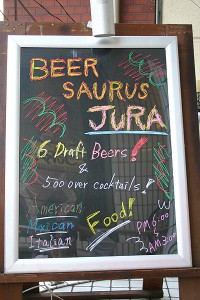 BEER
SAURUS
JURA
6 Draft Beers!
&
500 over cocktails!
American
Mexican
Italian
Food!
PM6:00
AM3:00